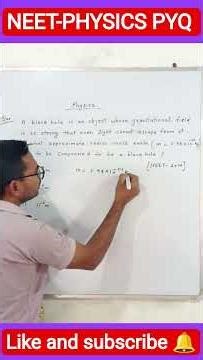 NEET-PHYSICS PYQ
Physics
A black hole is an object whose gravitational field
is so strong that even light cannot escape from it
what approximate radius would earth
to be compressed to be a black hole ?
[NEET-2014]
Like and subscribe 🔔